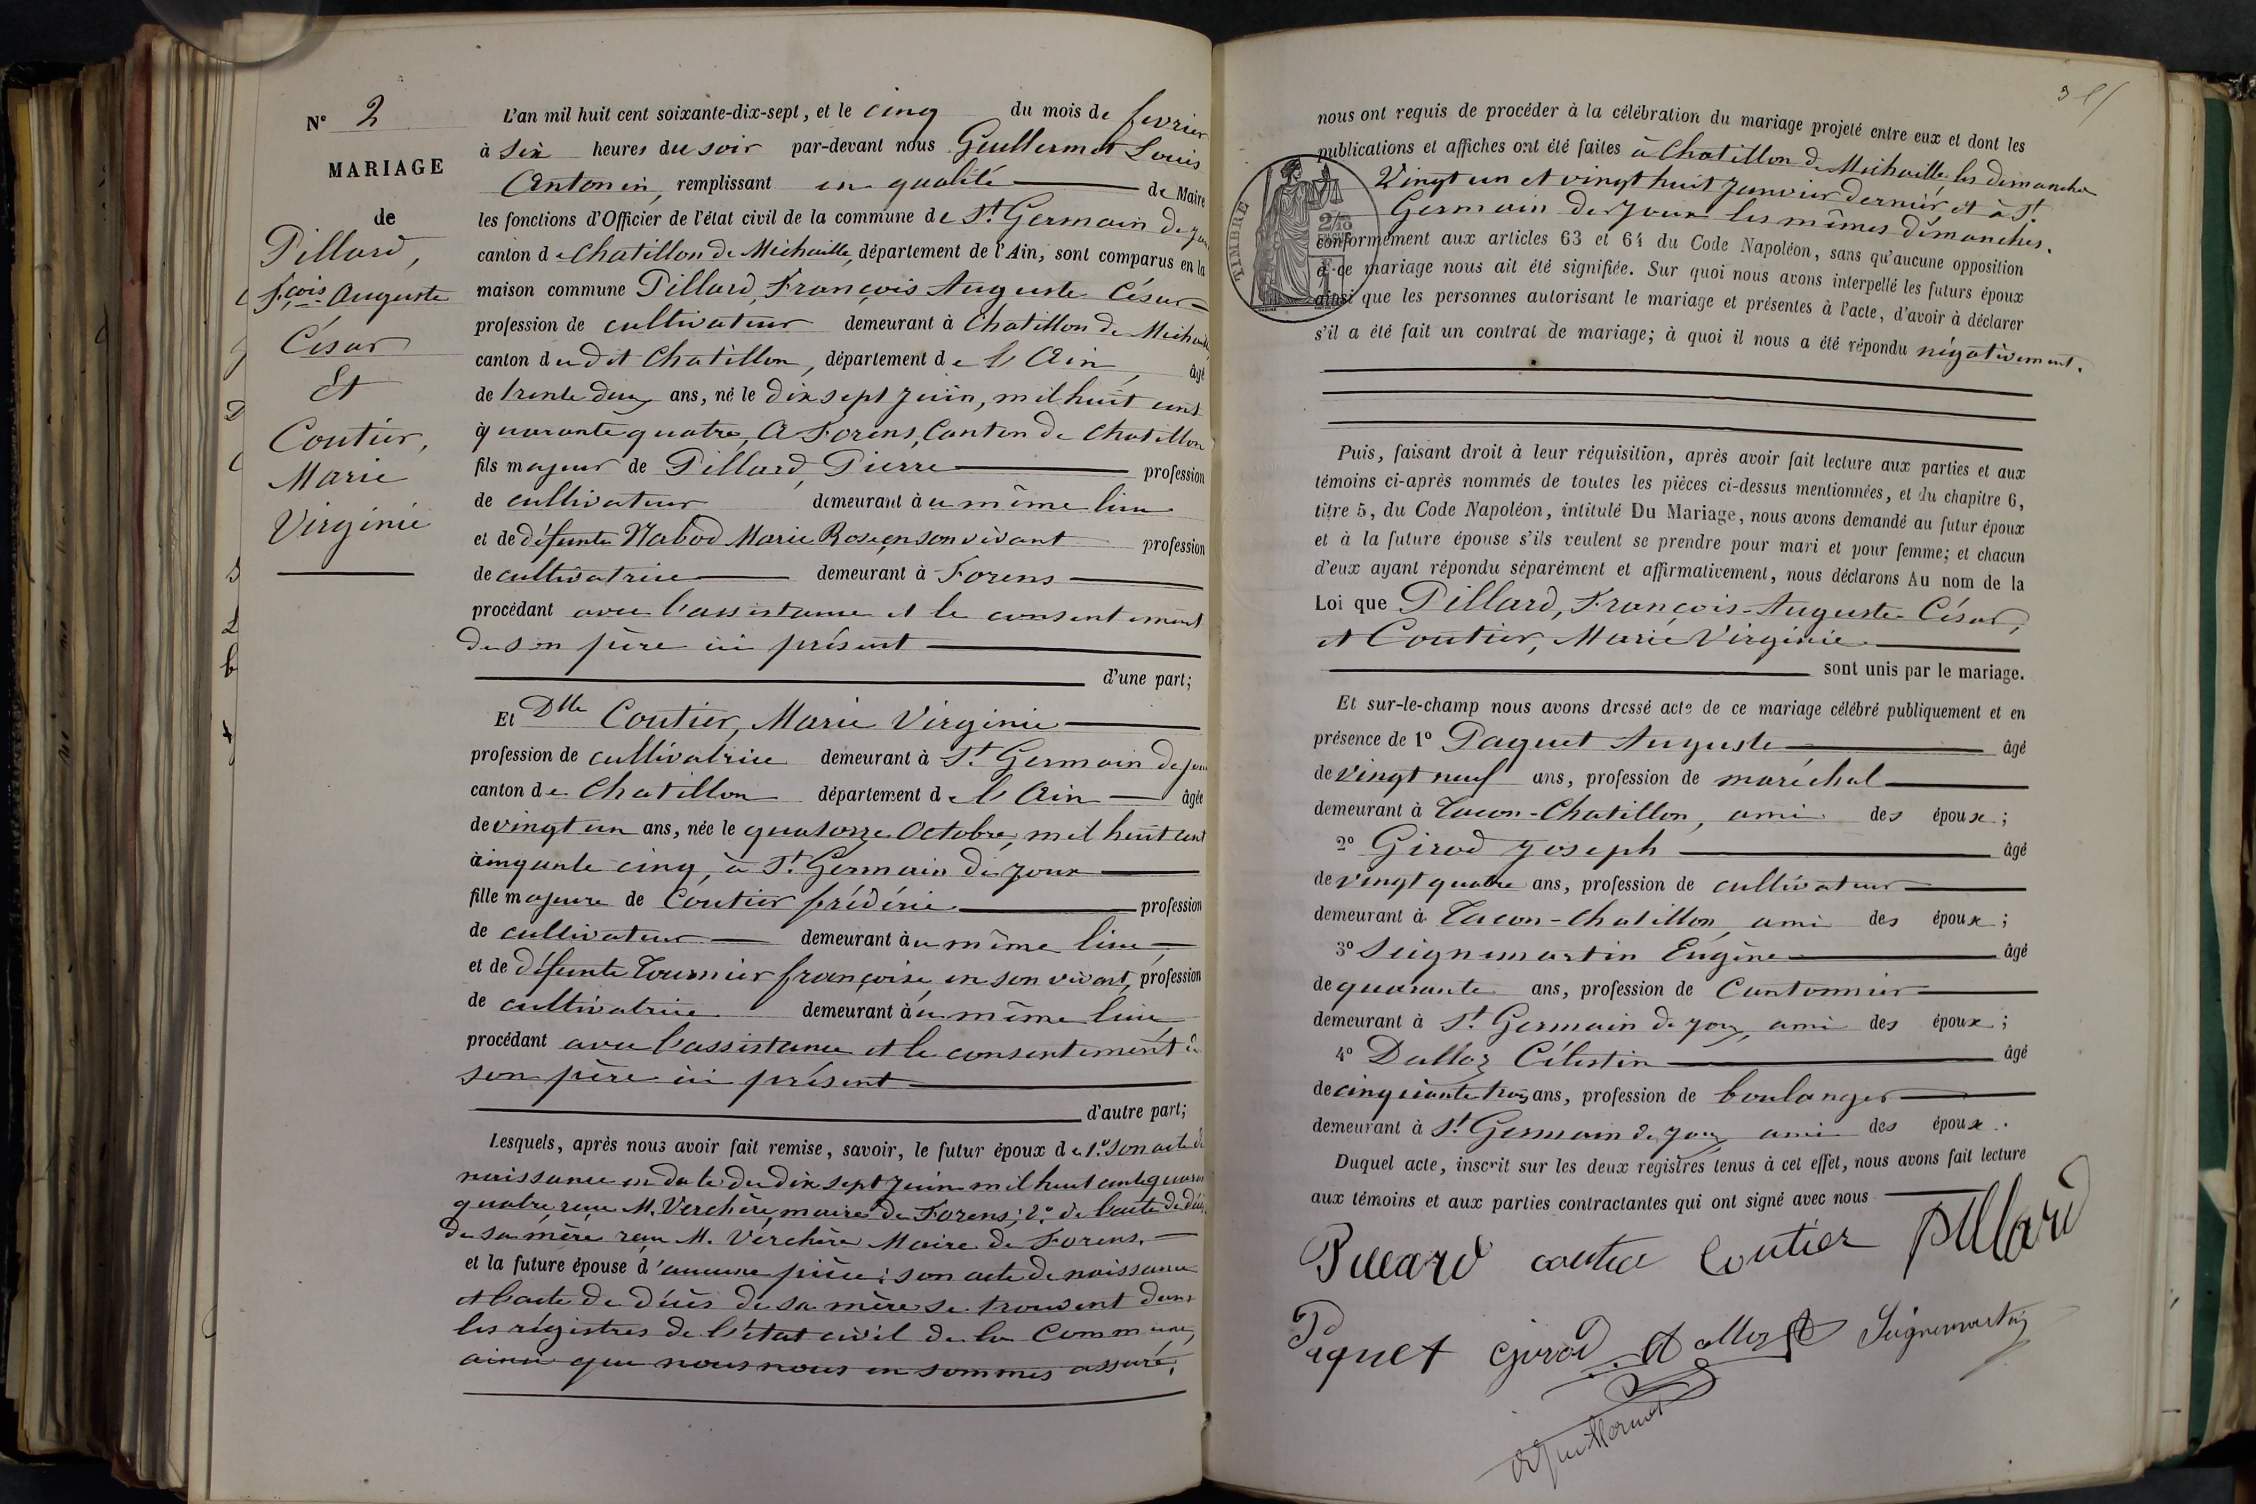 N° 2
MARIAGE
de
Pillard,
fçois Auguste
César
Et
Coutier,
Marie
Virginie
L'an mil huit cent soixante-dix-sept, et le cinq du mois de fevrier
à six heures du soir par-devant nous Guillermet Louis
Antonin, remplissant en qualité de Maire
les fonctions d'Officier de l'état civil de la commune de St Germain de Joux
canton de Chatillon de Michaille, département de l'Ain, sont comparus en la
maison commune Pillard, François Auguste César
profession de cultivateur demeurant à Chatillon de Michaille,
canton du dit Chatillon, département de l'Ain, âgé
de trente deux ans, né le dix sept juin, mil huit cent
quarante quatre, à Forens, Canton de Chatillon
fils majeur de Pillard, Pierre profession
de cultivateur demeurant au même lieu
et de défunte Nabod Marie Rose, en son vivant profession
de cultivatrice demeurant à Forens
procédant avec l'assistance et le consentement
de son père ici présent
d'une part;
Et Dlle Coutier, Marie Virginie
profession de cultivatrice demeurant à St Germain de joux
canton de Chatillon département de l'Ain âgée
de vingt un ans, née le quatorze Octobre, mil huit cent
cinquante cinq, à St Germain de Joux
fille majeure de Coutier frédéric profession
de cultivateur demeurant au même lieu
et de défunte Tournier françoise, en son vivant, profession
de cultivatrice demeurant au même lieu
procédant avec l'assistance et le consentement de
son père ici présent
d'autre part;
Lesquels, après nous avoir fait remise, savoir, le futur époux de 1° son acte de
naissance en date du dix sept juin mil huit cent quarante
quatre, reçu M. Verchère, maire de Forens; 2° de l'acte de décès
de sa mère reçu M. Verchère Maire de Forens.
et la future épouse d'aucune pièce; son acte de naissance
et l'acte de décès de sa mère se trouvent dans
les régistres de l'état civil de la Commune,
ainsi que nous nous en sommes assuré.
TIMBRE
2/10
nous ont requis de procéder à la célébration du mariage projeté entre eux et dont les
publications et affiches ont été faites à Chatillon de Michaille, les dimanches
Vingt un et vingt huit Janvier dernier, et à St.
Germain de Joux les mêmes dimanches.
conformément aux articles 63 et 64 du Code Napoléon, sans qu'aucune opposition
à ce mariage nous ait été signifiée. Sur quoi nous avons interpellé les futurs époux
ainsi que les personnes autorisant le mariage et présentes à l'acte, d'avoir à déclarer
s'il a été fait un contrat de mariage; à quoi il nous a été répondu négativement.
Puis, faisant droit à leur réquisition, après avoir fait lecture aux parties et aux
témoins ci-après nommés de toutes les pièces ci-dessus mentionnées, et du chapitre 6,
titre 5, du Code Napoléon, intitulé Du Mariage, nous avons demandé au futur époux
et à la future épouse s'ils veulent se prendre pour mari et pour femme; et chacun
d'eux ayant répondu séparément et affirmativement, nous déclarons Au nom de la
Loi que Pillard, François-Auguste César,
et Coutier, Marie Virginie
sont unis par le mariage.
Et sur-le-champ nous avons dressé acte de ce mariage célébré publiquement et en
présence de 1° Paquet Auguste âgé
de vingt neuf ans, profession de maréchal
demeurant à Tacon-Chatillon, ami des époux;
2° Girod Joseph âgé
de vingt quatre ans, profession de cultivateur
demeurant à Tacon-Chatillon, ami des époux;
3° Seignemartin Eugène âgé
de quarante ans, profession de Cantonnier
demeurant à St Germain de Joux, ami des époux;
4° Dalloz Célestin âgé
de cinquante trois ans, profession de boulanger
demeurant à St Germain de Joux ami des époux.
Duquel acte, inscrit sur les deux registres tenus à cet effet, nous avons fait lecture
aux témoins et aux parties contractantes qui ont signé avec nous
Pillard coutier Coutier Pillard
Paquet Girod Dalloz Seignemartin
Guillermet